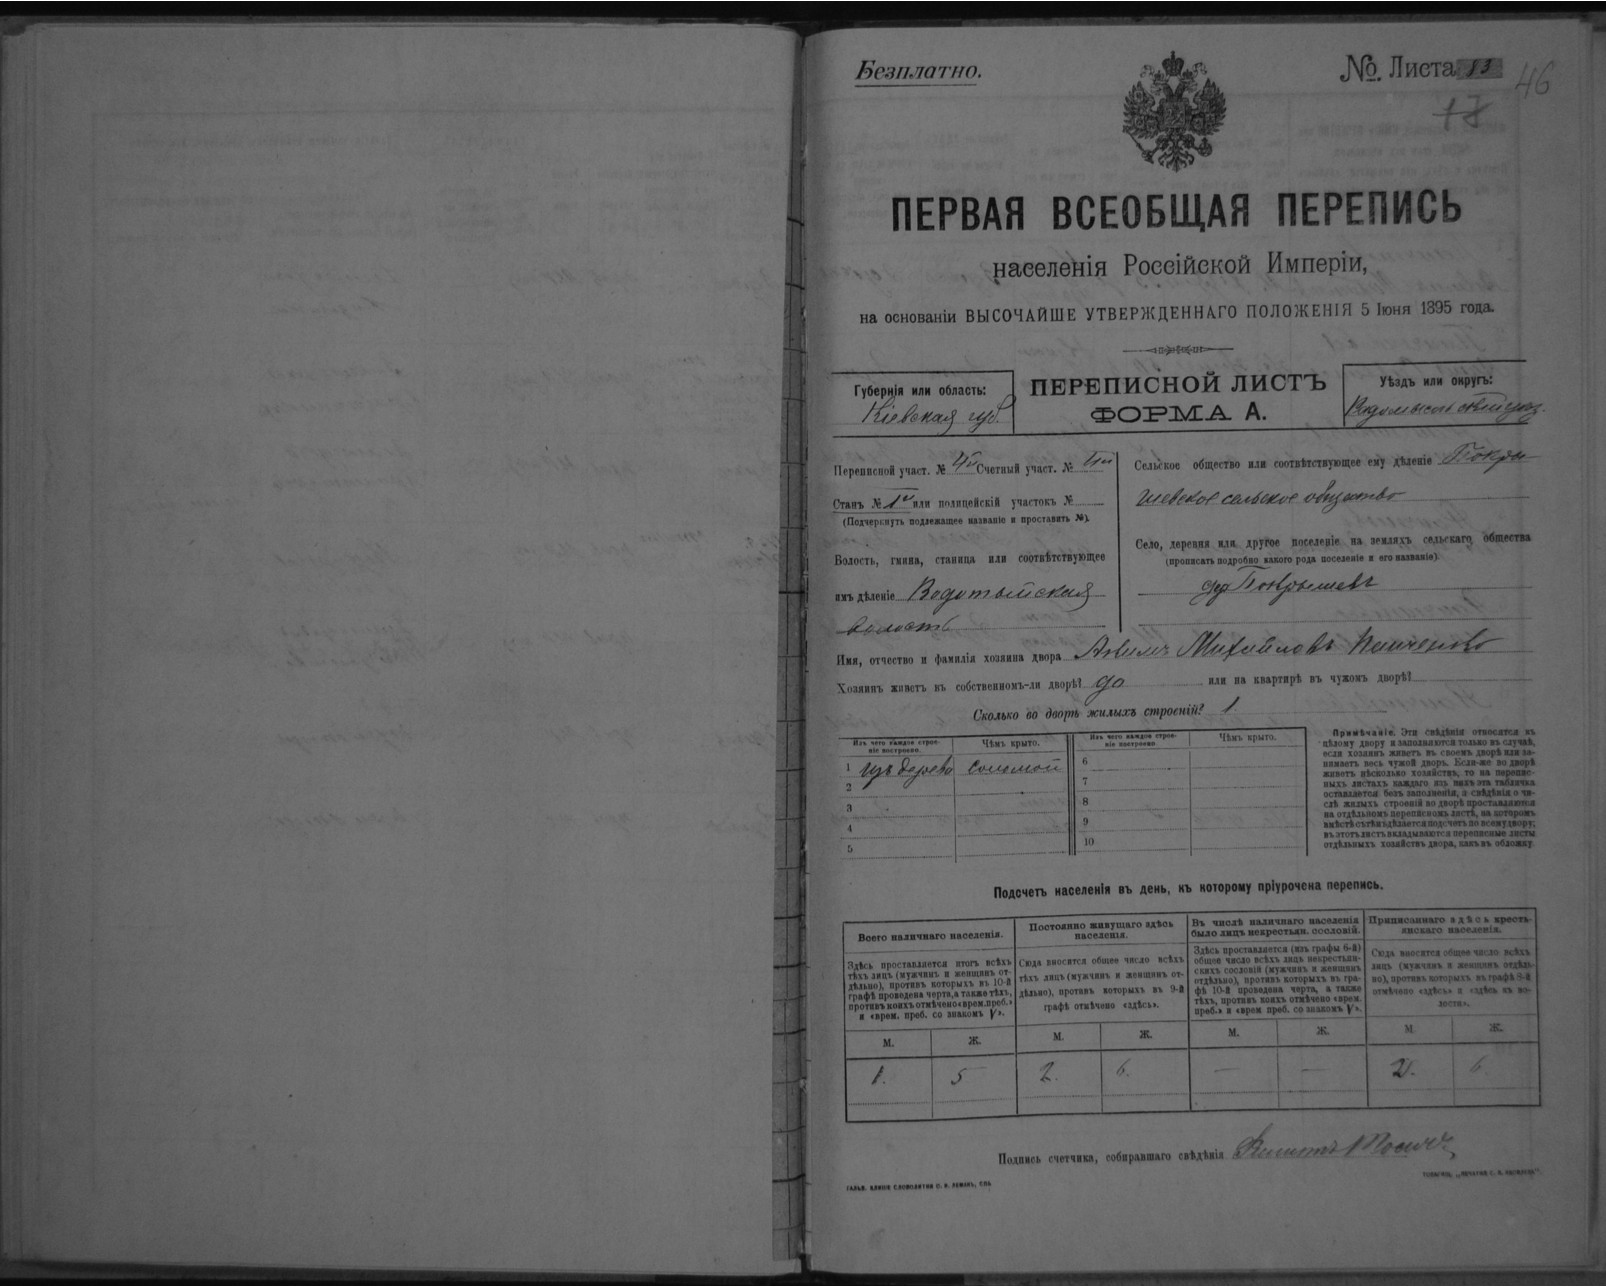 Безплатно.
№. Листа 13
46
ПЕРВАЯ ВСЕОБЩАЯ ПЕРЕПИСЬ
населенія Россійской Имперіи,
на основаніи ВЫСОЧАЙШЕ УТВЕРЖДЕННАГО ПОЛОЖЕНІЯ 5 Іюня 1895 года.
Губернія или область:
Кіевская губ.
ПЕРЕПИСНОЙ ЛИСТЪ
ФОРМА А.
Уѣздъ или округъ:
Переписной участ. № 4й Счетный участ. №
Станъ № 1й или полицейскій участокъ №
(Подчеркнуть подлежащее названіе и проставить №).
Волость, гмина, станица или соотвѣтствующее
имъ дѣленіе Водотыйская
волость
Сельское общество или соотвѣтствующее ему дѣленіе Покры-
шевское сельское общество
Село, деревня или другое поселеніе на земляхъ сельскаго общества
(прописать подробно какого рода поселеніе и его названіе)
дер Покрышевъ
Имя, отчество и фамилія хозяина двора Михайловъ
Хозяинъ живетъ въ собственномъ-ли дворѣ? да или на квартирѣ въ чужомъ дворѣ?
Сколько во дворѣ жилыхъ строеній? 1
Изъ чего каждое строе-
ніе построено.
Чѣмъ крыто.
Изъ чего каждое строе-
ніе построено.
Чѣмъ крыто.
1 изъ дерева соломой
2
3
4
5
6
7
8
9
10
Примѣчаніе. Эти свѣдѣнія относятся къ
цѣлому двору и заполняются только въ случаѣ,
если хозяинъ живетъ въ своемъ дворѣ или за-
нимаетъ весь чужой дворъ. Если-же во дворѣ
живетъ нѣсколько хозяйствъ, то на перепис-
ныхъ листахъ каждаго изъ нихъ эта табличка
оставляется безъ заполненія, а свѣдѣнія о чи-
слѣ жилыхъ строеній во дворѣ проставляются
на отдѣльномъ переписномъ листѣ, на которомъ
вмѣстѣ съ тѣмъ дѣлается подсчетъ по всему двору;
въ этотъ листъ вкладываются переписные листы
отдѣльныхъ хозяйствъ двора, какъ въ обложку.
Подсчетъ населенія въ день, къ которому пріурочена перепись.
Всего наличнаго населенія.
Здѣсь проставляется итогъ всѣхъ
тѣхъ лицъ (мужчинъ и женщинъ от-
дѣльно), противъ которыхъ въ 10-й
графѣ проведена черта, а также тѣхъ,
противъ коихъ отмѣчено «врем. преб.»
и «врем. преб. со знакомъ V».
Постоянно живущаго здѣсь
населенія.
Сюда вносится общее число всѣхъ
тѣхъ лицъ (мужчинъ и женщинъ от-
дѣльно), противъ которыхъ въ 9-й
графѣ отмѣчено «здѣсь».
Въ числѣ наличнаго населенія
было лицъ некрестьян. сословій.
Здѣсь проставляется (изъ графы 6-й)
общее число всѣхъ лицъ некрестьян-
скихъ сословій (мужчинъ и женщинъ
отдѣльно), противъ которыхъ въ гра-
фѣ 10-й проведена черта, а также
тѣхъ, противъ коихъ отмѣчено «врем.
преб.» и «врем преб. со знакомъ V».
Приписаннаго здѣсь кресть-
янскаго населенія.
Сюда вносится общее число всѣхъ
лицъ (мужчинъ и женщинъ отдѣль-
но), противъ которыхъ въ графѣ 8-й
отмѣчено «здѣсь» и «здѣсь въ во-
лости».
М. Ж. М. Ж. М. Ж. М. Ж.
1. 5 2. 6. — — 2. 6
Подпись счетчика, собиравшаго свѣдѣнія
ГАЛЬВ. КЛИШЕ СЛОВОЛИТНИ О. И. ЛЕМАНЪ, СПБ.